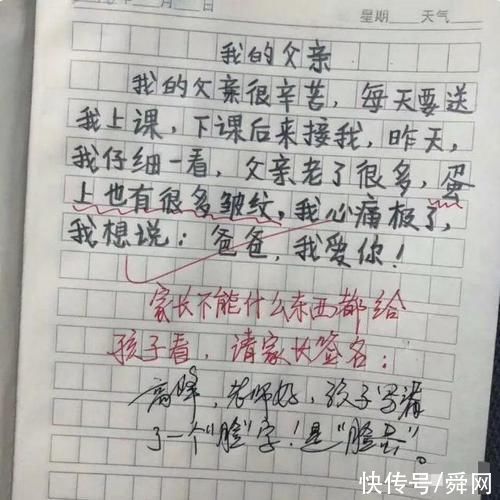 月 日 星期 天气
我的父亲
我的父亲很辛苦，每天要送
我上课，下课后来接我，昨天，
我仔细一看，父亲老了很多，蛋
上也有很多皱纹，我心痛极了，
我想说：爸爸，我爱你！
家长不能什么东西都给
孩子看，请家长签名：
高峰，老师好，孩子写漏
了一个"脸"字！是"脸蛋"。
快传号/舜网